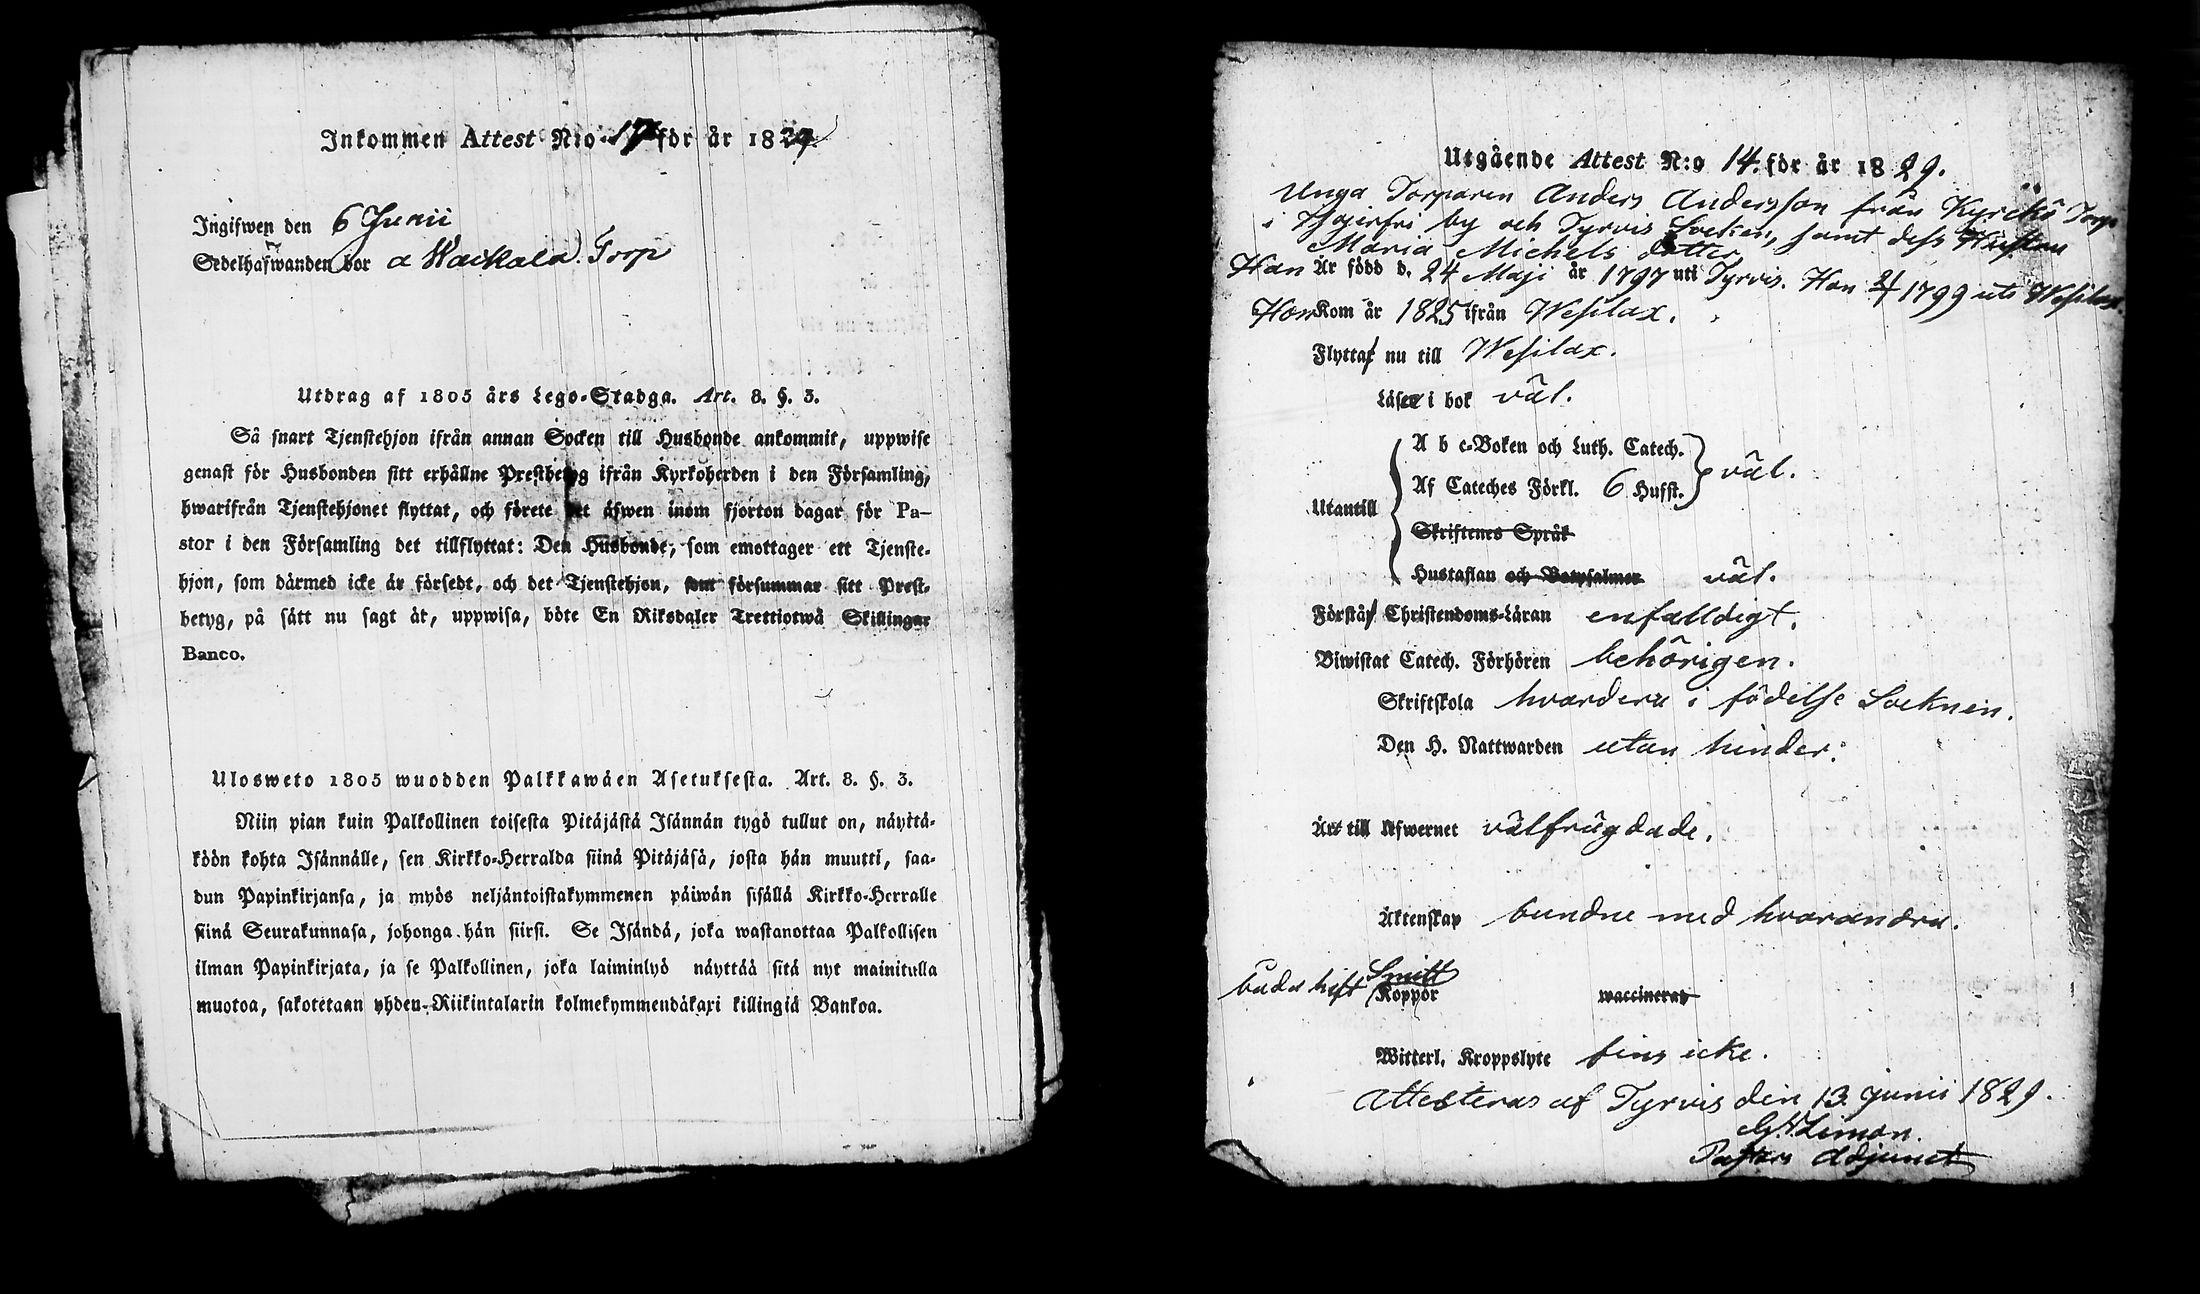 Inkommen Attest N:o 17 för år 1829
Ingifwen den 6 Junii
Sedelhafwanden bor a Waikala Torp
Utdrag af 1805 års Lego-Stadga. Art. 8. §. 3.
Så snart Tjenstehjon ifrån annan Socken till Husbonde ankommit, uppwise
genast för Husbonden sitt erhållne Prestbetyg ifrån Kyrkoherden i den Församling,
hwarifrån Tjenstehjonet flyttat, och förete det äfwen inom fjorton dagar för Pa-
stor i den Församling det tillflyttat: Den Husbonde, som emottager ett Tjenste-
hjon, som därmed icke är försedt, och det Tjenstehjon, som försummar sitt Prest-
betyg, på sätt nu sagt är, uppwisa, böte En Riksdaler Trettiotwå Skillingar
Banco.
Ulosweto 1805 wuodden Palkkawäen Asetuksesta. Art. 8. §. 3.
Niin pian kuin Palkollinen toisesta Pitäjästä Isännän tygö tullut on, näyttä-
köön kohta Isännälle, sen Kirkko-Herralda siinä Pitäjäsä, josta hän muutti, saa-
dun Papinkirjansa, ja myös neljäntoistakymmenen päiwän sisällä Kirkko-Herralle
siinä Seurakunnasa, johonga hän siirsi. Se Isändä, joka wastanottaa Palkollisen
ilman Papinkirjata, ja se Palkollinen, joka laiminlyö näyttää sitä nyt mainitulla
muotoa, sakotetaan yhden Riikintalarin kolmekymmendäkaxi killingiä Bankoa.
Utgående Attest N:o 14. för år 1829.
Unga Torparen Anders Andersson från Kyrckö Torp
i by och Tyrvis Socken, samt dess Hustru
Maria Michels dotter
Han Är född d. 24 Maji år 1797 uti Tyrvis. Hon 21/1 1799 uti Wesilax.
Hon Kom år 1825 ifrån Wesilax.
Flytta nu till Wesilax.
Läser i bok väl.
A b c-Boken och Luth. Catech.
Af Cateches Förkl. 6 Hufst. väl.
Utantill
Skriftenes Språk
Hustaflan och Botpsalmer väl.
Förstår Christendoms-Läran enfalldigt.
Biwistat Catech. Förhören behörigen.
Skriftskola hvardera i födelse Socknen.
Den H. Nattwarden utan hinder.
Är till Lefwernet välfrägdade.
Äktenskap bundne med hvarandra.
båda haft Smitt
Koppor waccinerad
Witterl. Kroppslyte fins icke.
Attesteras af Tyrvis den 13 Junii 1829.
Limon.
Pastors Adjunct